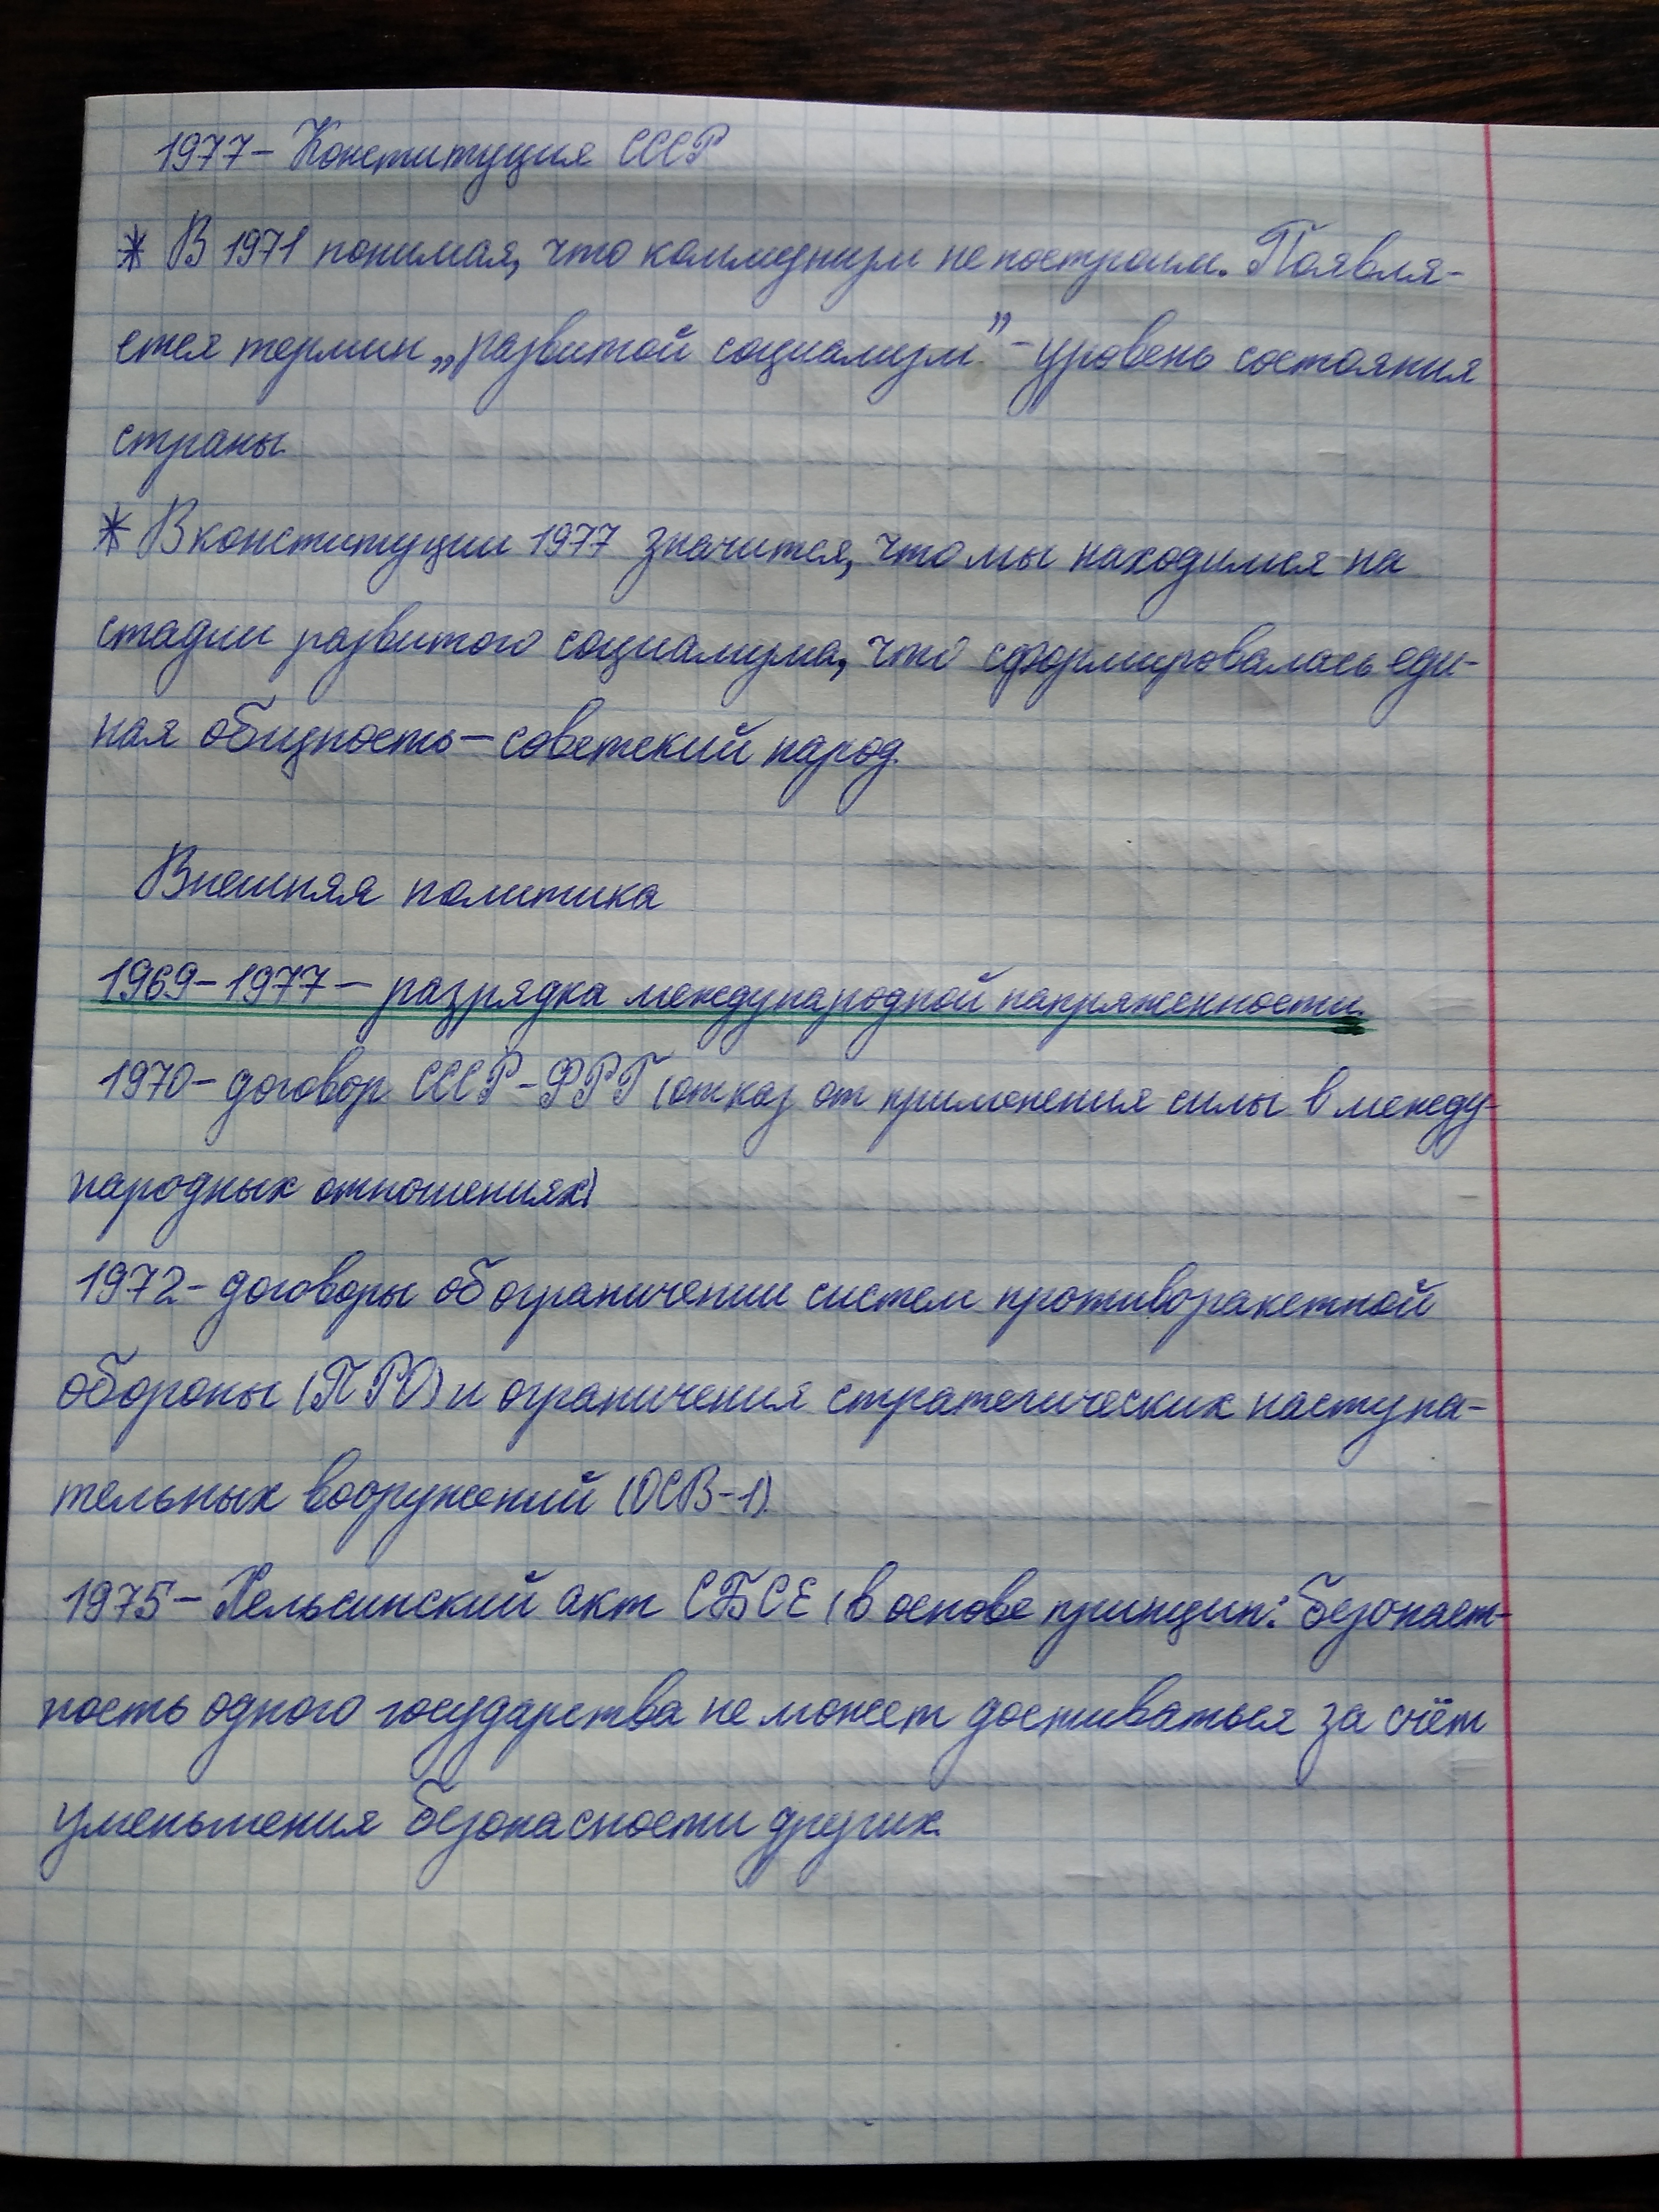 1977– Конституция СССР
* В 1971 понимая, что коммунизм не построим. Появля-
ется термин „развитой социализм” – уровень состояния
страны.
* В конституции 1977 значится, что мы находимся на
стадии развитого социализма, что сформировалась еди-
ная общность – советский народ.
Внешняя политика
1969–1977 – разрядка международной напряженности.
1970– договор СССР-ФРГ (отказ от применения силы в между-
народных отношениях)
1972- договоры об ограничении систем противоракетной
обороны (ПРО) и ограничения стратегических наступа-
тельных вооружений (ОСВ-1).
1975– Хельсинский акт СБСЕ (в основе принцип: Безопаст-
ность одного государства не может достиваться за счёт
уменьшения безопасности других.